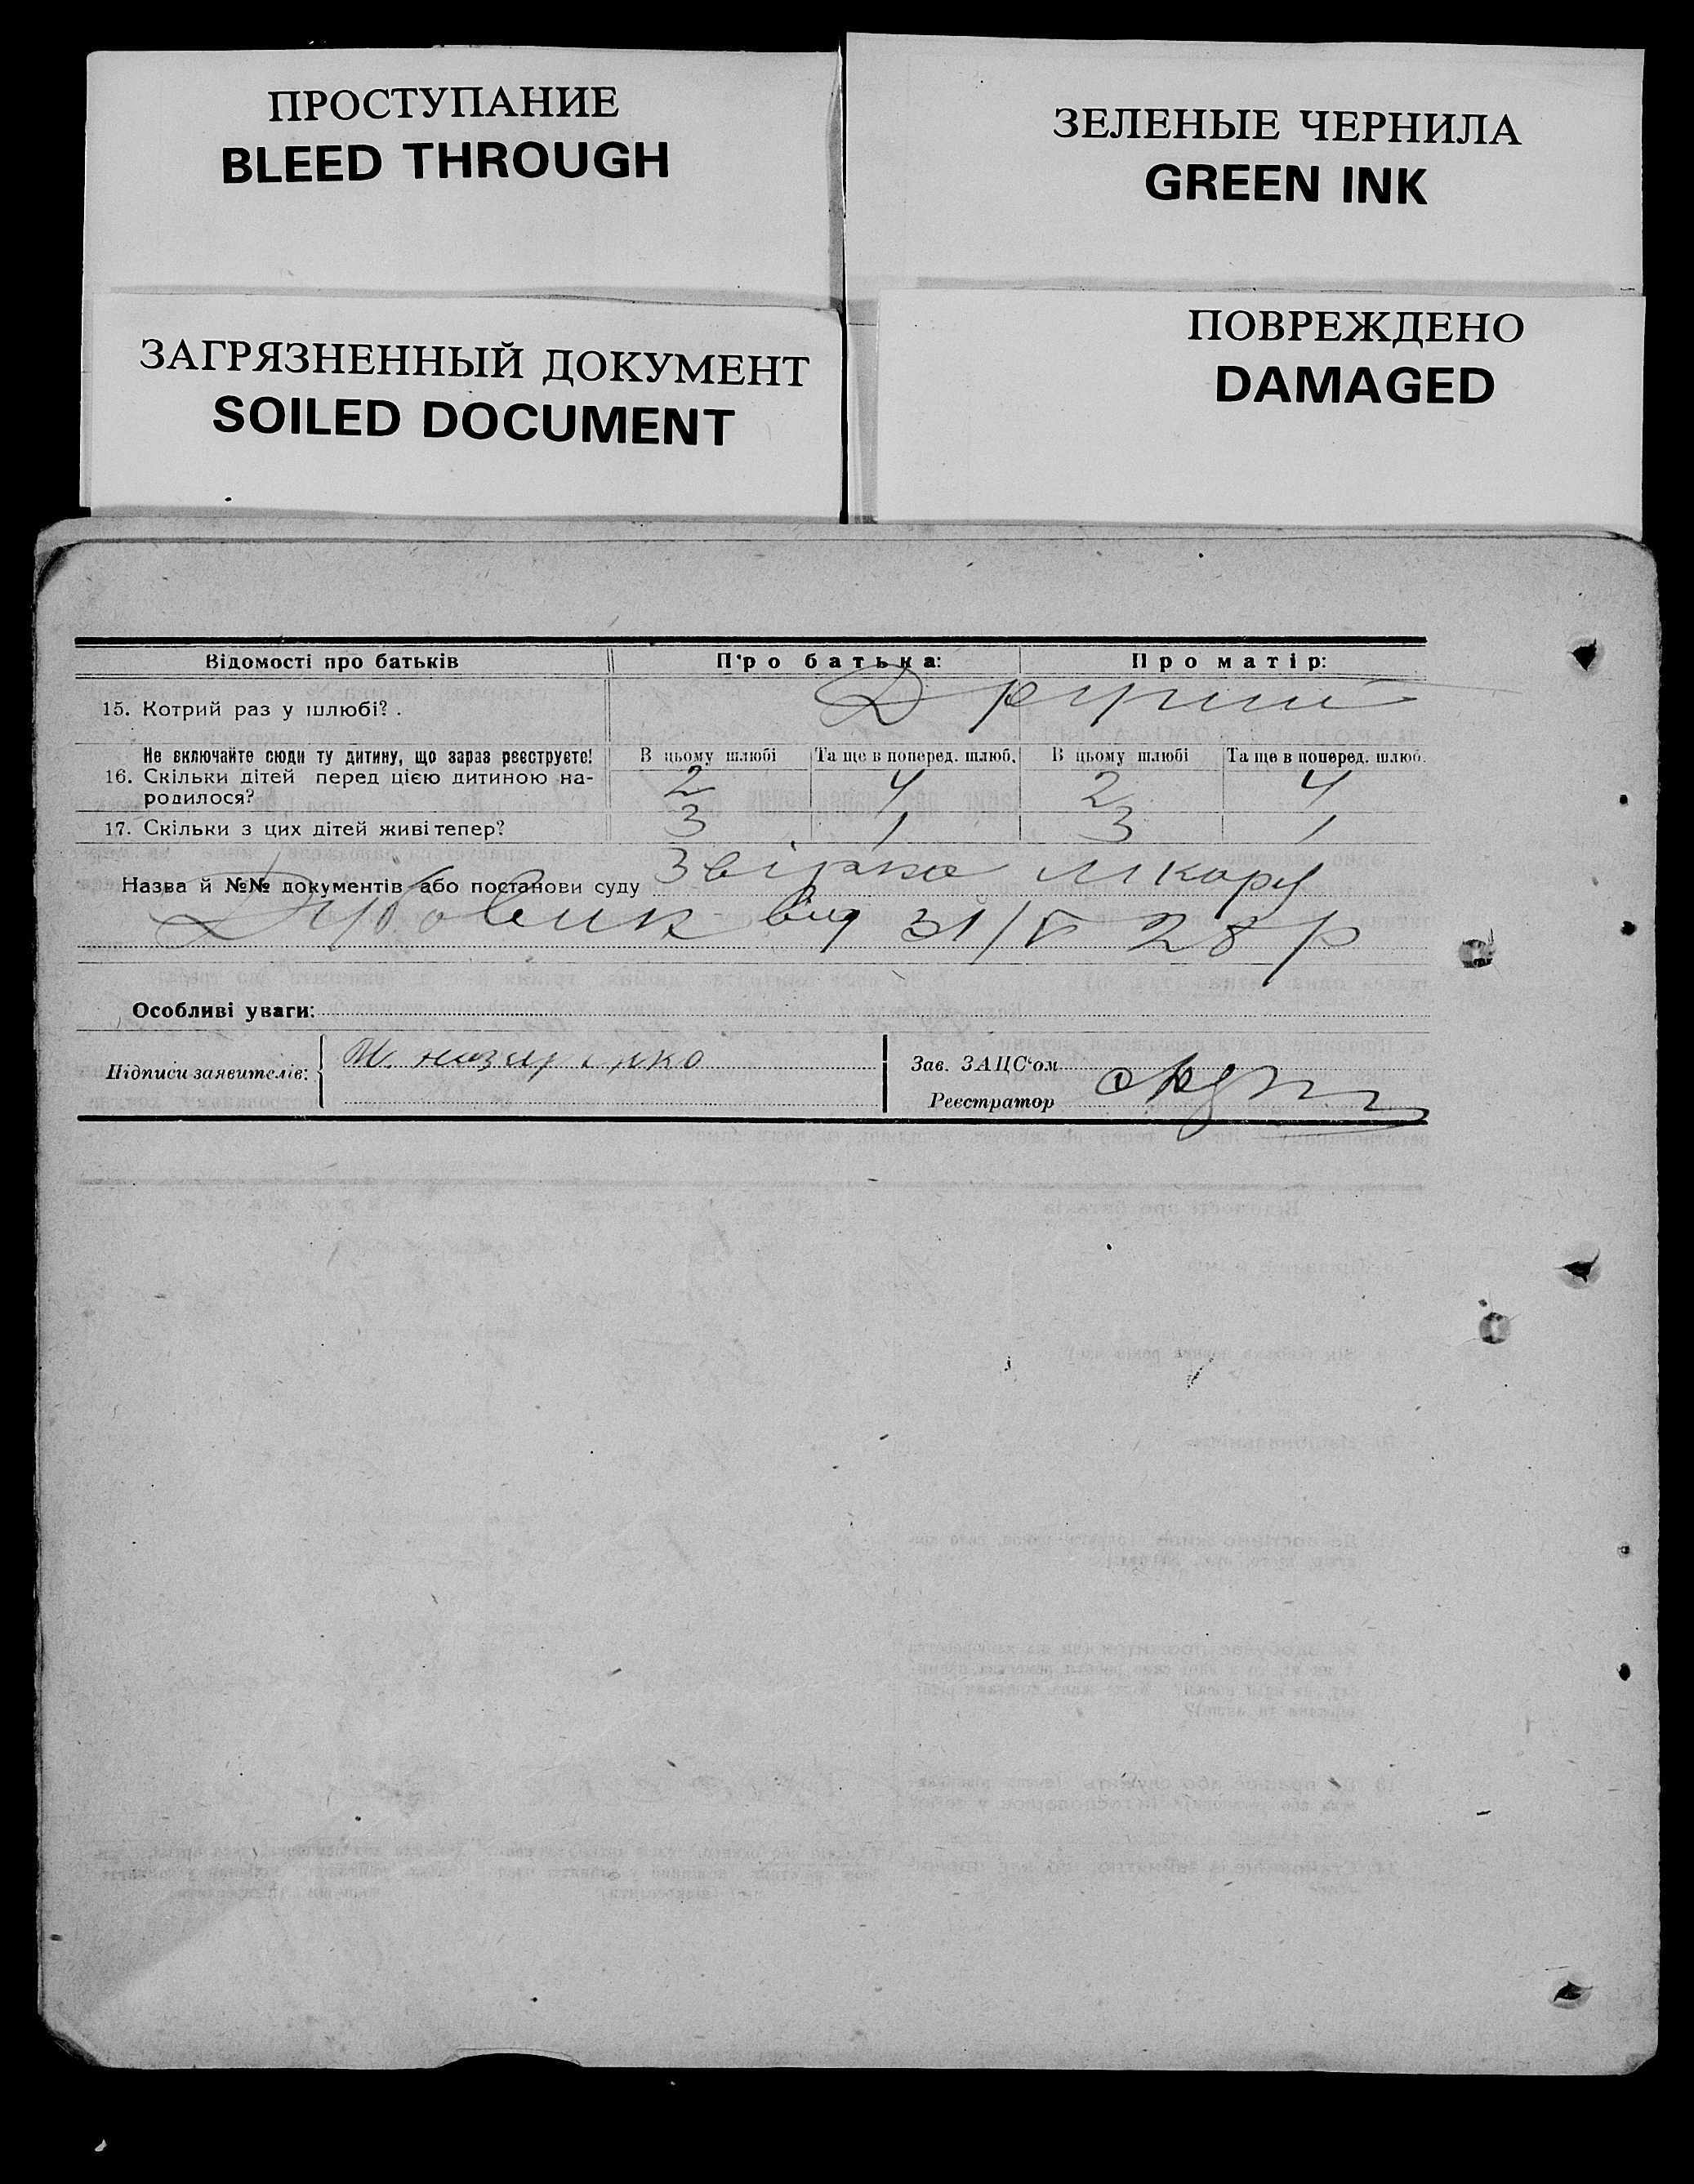 ПРОСТУПАНИЕ
BLEED THROUGH
ЗЕЛЕНЫЕ ЧЕРНИЛА
GREEN INK
ЗАГРЯЗНЕННЫЙ ДОКУМЕНТ
SOILED DOCUMENT
ПОВРЕЖДЕНО
DAMAGED
Відомості про батьків Про батька: Про матір:
15. Котрий раз у шлюбі? . Другий
Не включайте сюди ту дитину, що зараз реєструєте! В цьому шлюбі Та ще в поперед. шлюб. В цьому шлюбі Та ще в поперед. шлюб.
16. Скільки дітей перед цією дитиною на- 2 4 2 4
родилося?
17. Скільки з цих дітей живі тепер? 3 1 3 1
Назва й №№ документів або постанови суду лікаря
Дубовик від 31/V 28 р
Особливі уваги:
Підписи заявителів:
Зав. ЗАЦС'ом
Реєстратор